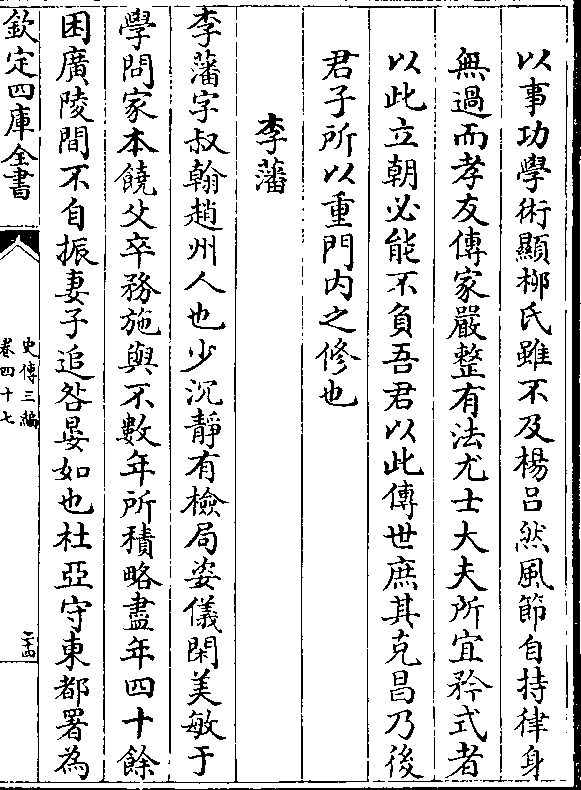 以事功學術顯栁氏雖不及楊吕然風節自持律身
無過而孝友傳家嚴整有法尤士大夫所宜矜式者
以此立朝必能不負吾君以此傳世庶其克昌乃後
君子所以重門内之修也
李藩
李藩字叔翰趙州人也少沉靜有檢局姿儀閑美敏于
學問家本饒父卒務施與不數年所積略盡年四十餘
困廣陵間不自振妻子追咎晏如也杜亞守東都署為
欽定四庫全書
史傳三編
卷四十七
二十四